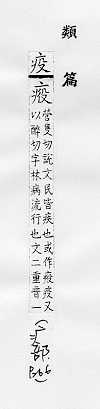 類篇
疫
營隻切說文民皆疾也或作疫又
以醉切字林病流行也文二重音一
(疒部